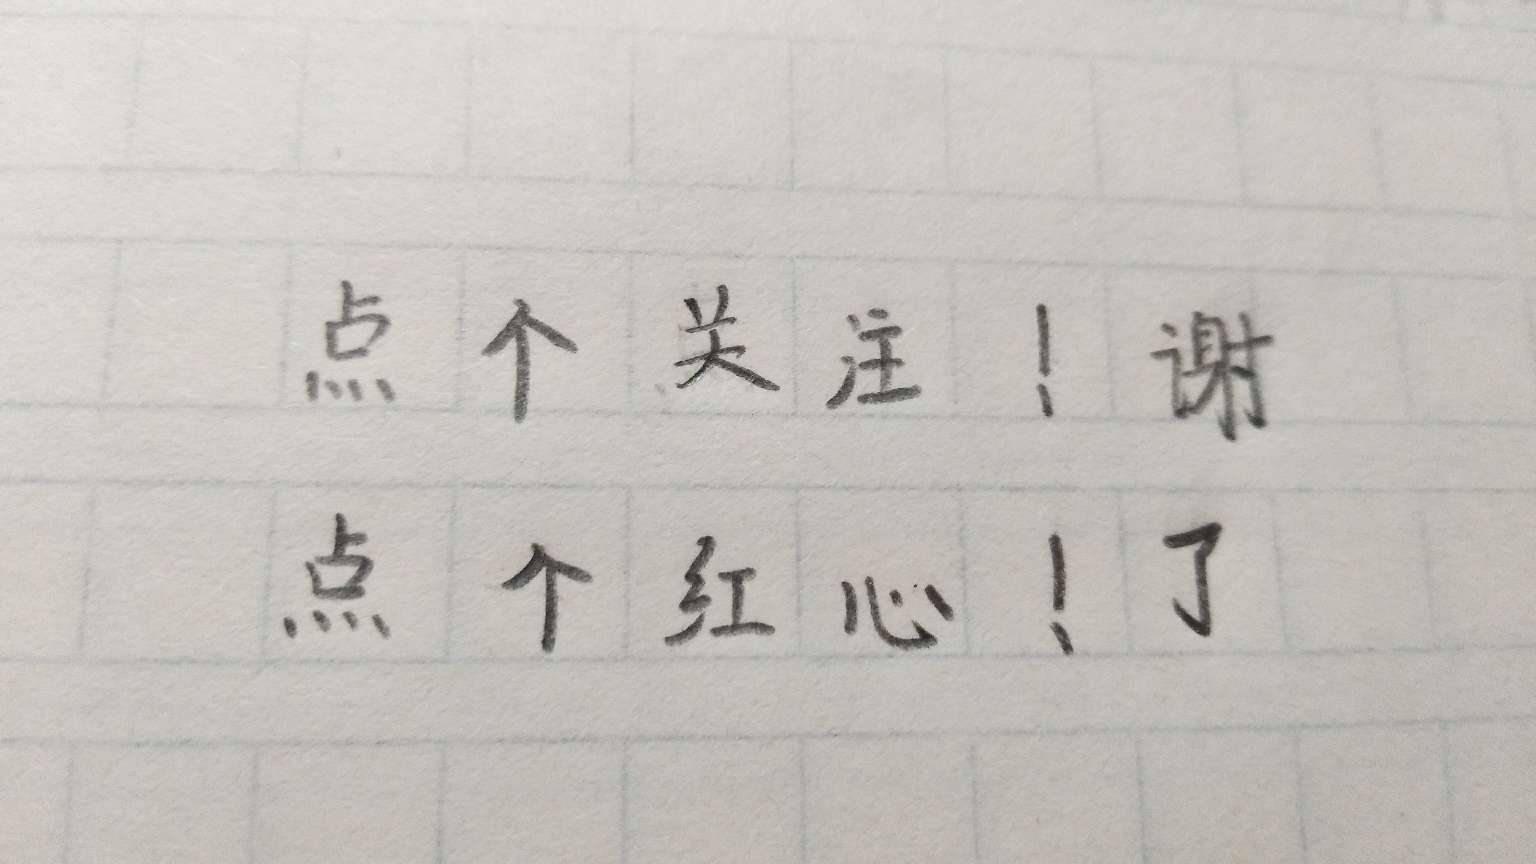 点个关注！谢
点个红心！了